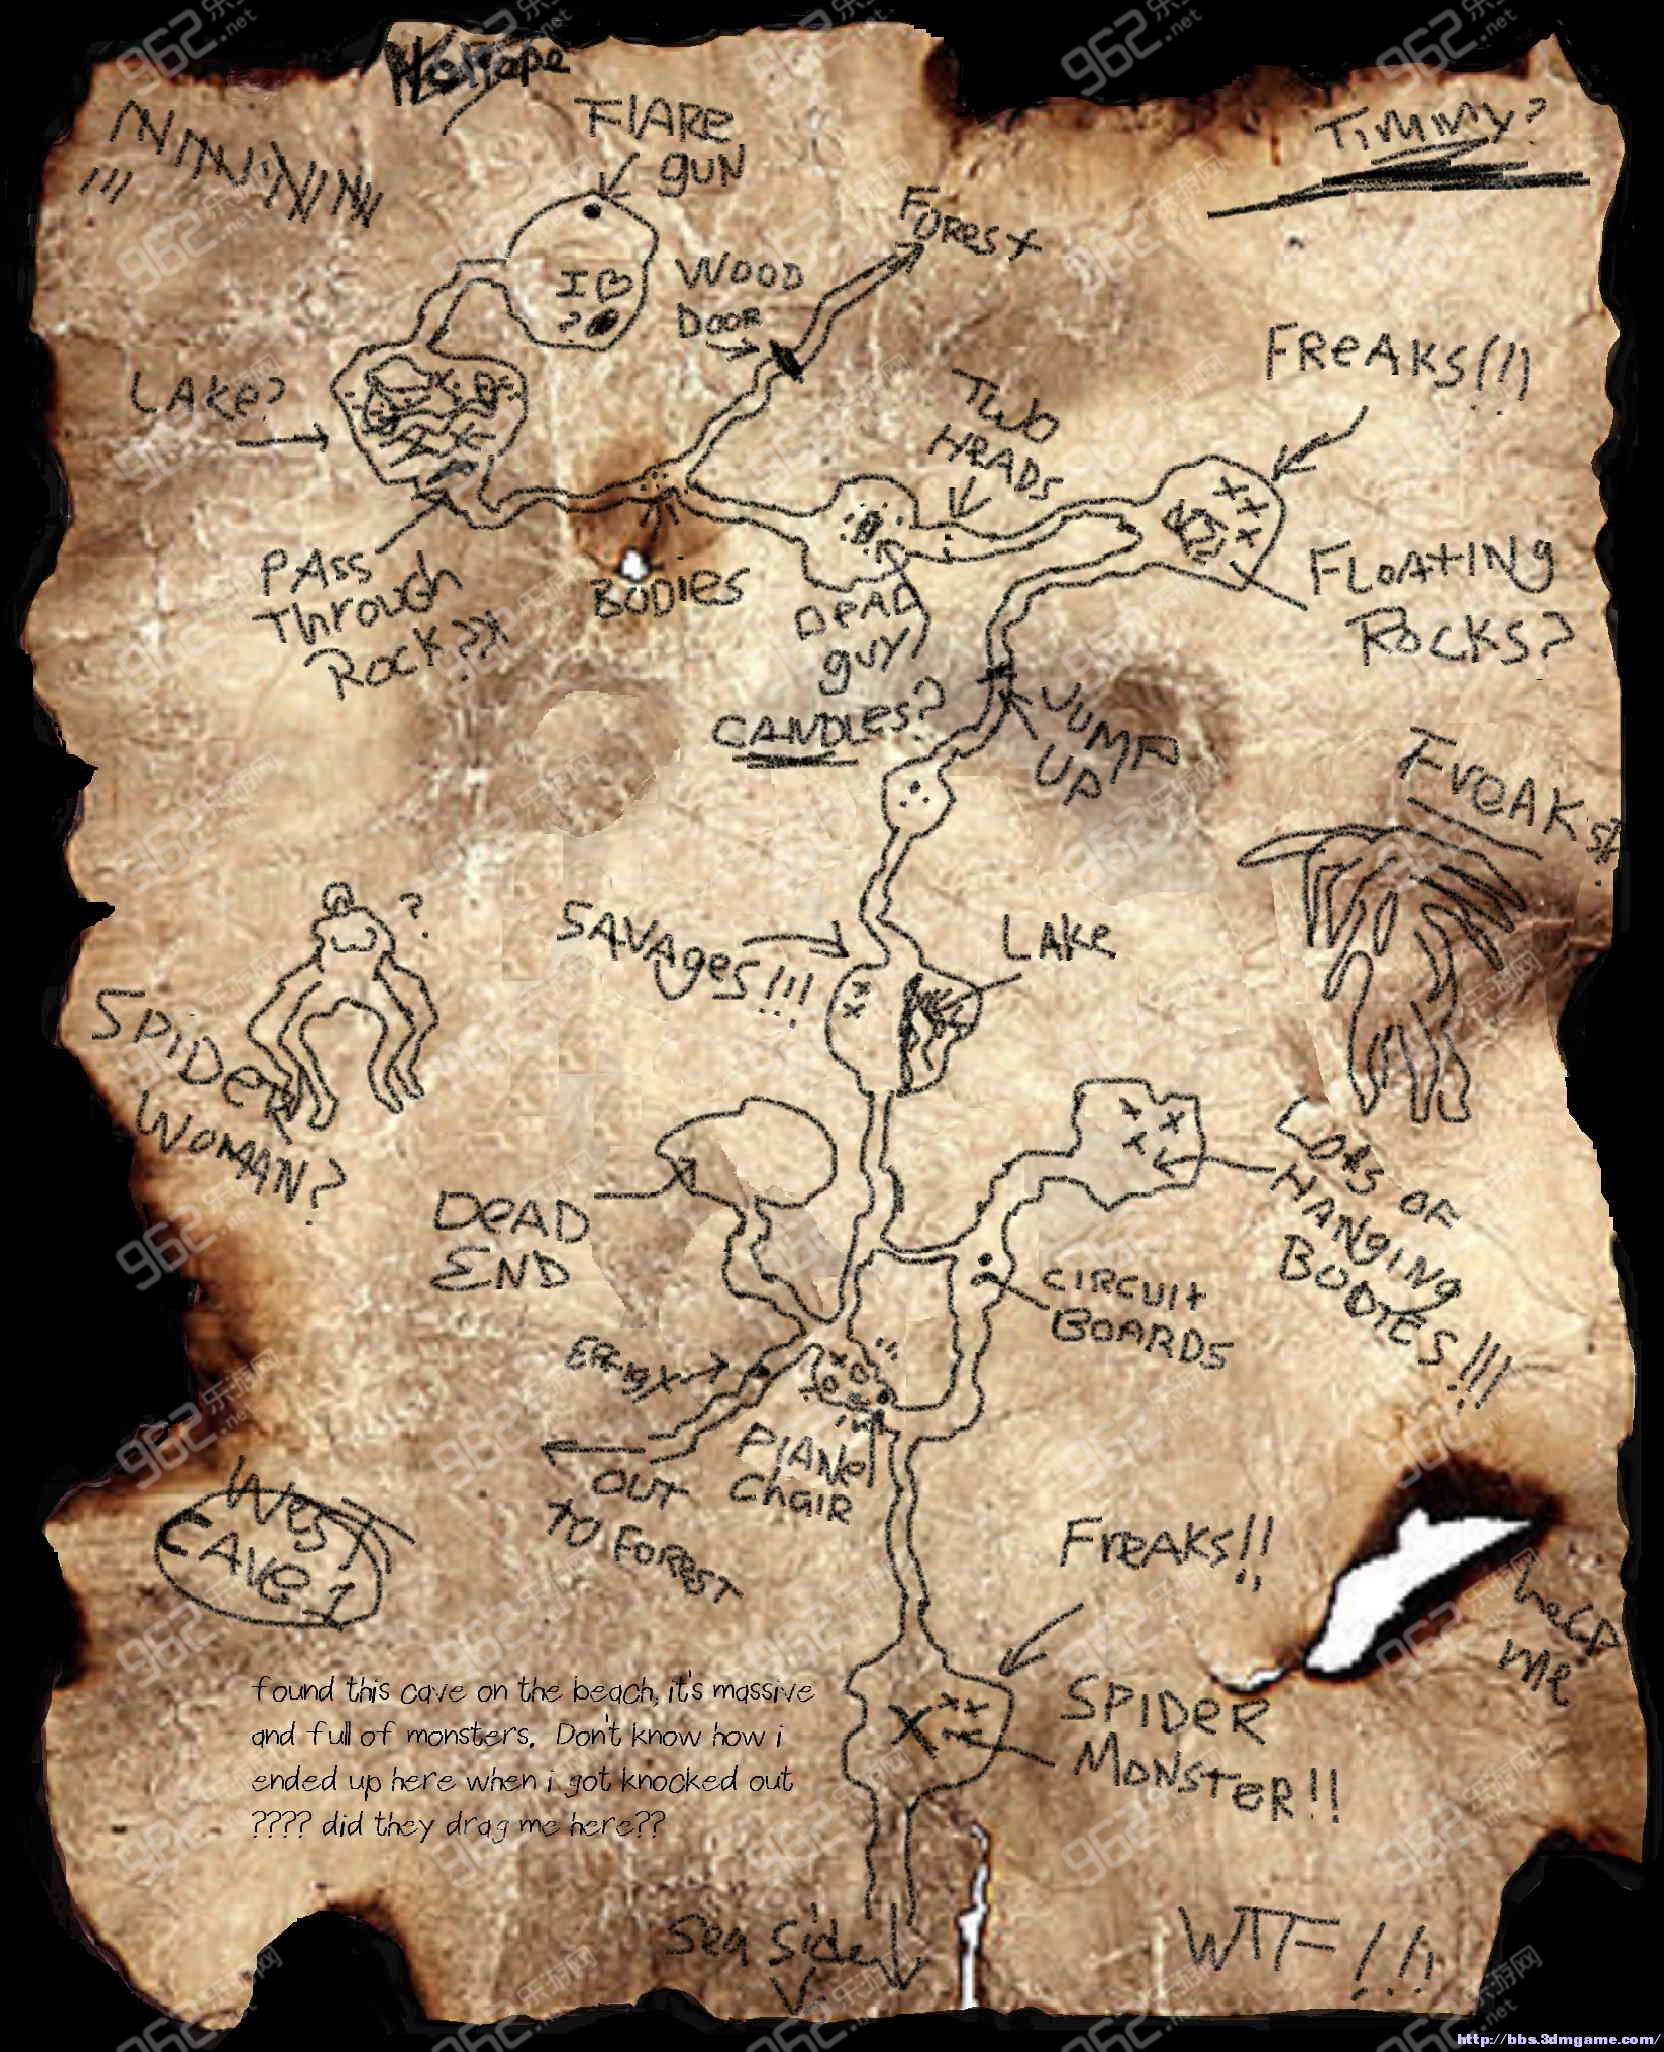 FLARE
gUN
Timmy?
FOResT
WOOD
DOOR
LAke?
TWO
HeADS
FReAKS!!!
PAss
Through
Rock??
BODIeS
DeAD
guy
CANDLes?
FLOATINg
ROCKS?
JUMP
UP
FreAKs!
SAVAgeS!!!
LAke
?
SPIDeR
WOMAN?
DeAD
END
LOTs OF
HANgINg
BODIES!!!
CIRCUIT
BOARDS
OUT
TO FOREST
PlANe
ChAIR
WesT
CAVe 1
FreAKs!!
heLP
me
SPIDeR
MONSTeR!!
found this cave on the beach, it's massive
and full of monsters. Don't know how i
ended up here when i got knocked out
???? did they drag me here??
Sea Side
WTF!!!
962.net
乐游网
http://bbs.3dmgame.com/